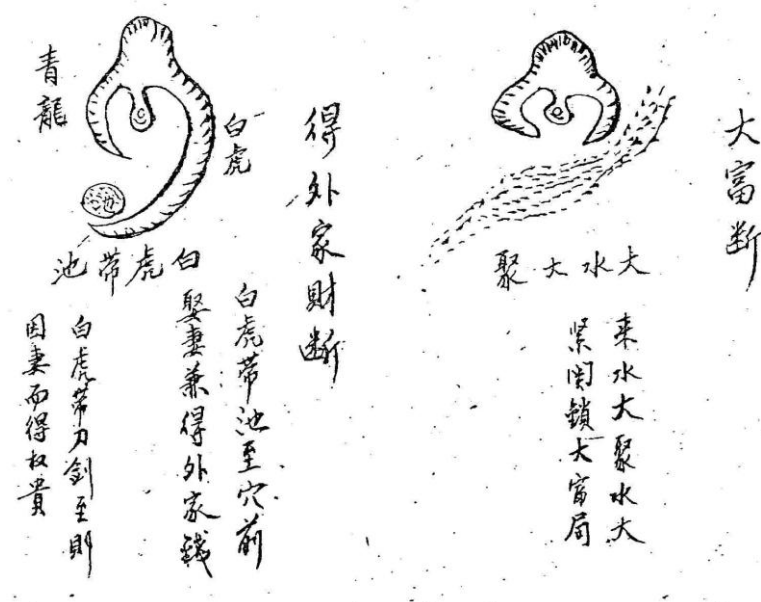 大富断
大水大聚
来水大聚水大
紧関鎖大富局
得外家財断
青龍
白虎
池
白虎帶池
白虎帶池至穴前
娶妻兼得外家錢
白虎帶刀劍至則
因妻而得权貴